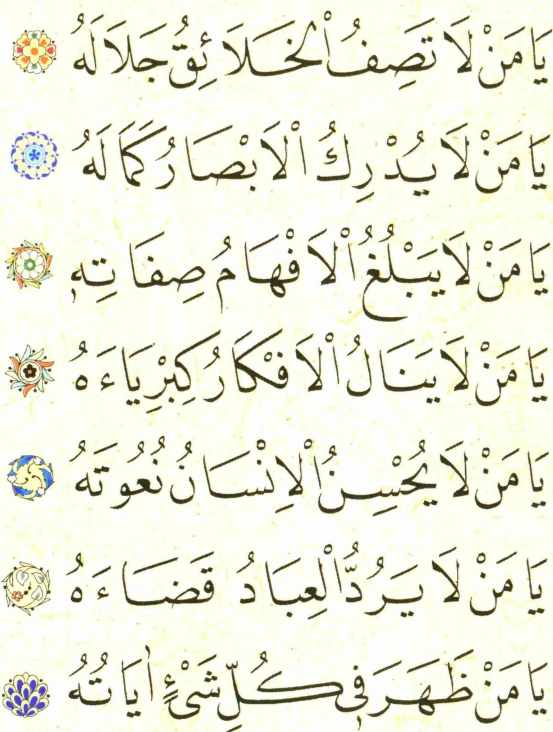 يَا مَنْ لَا تَصِفُ الْخَلَائِقُ جَلَالَهُ
يَا مَنْ لَا يُدْرِكُ الْاَبْصَارُ كَمَالَهُ
يَا مَنْ لَا يَبْلُغُ الْاَفْهَامُ صِفَاتِهِ
يَا مَنْ لَا يَنَالُ الْاَفْكَارُ كِبْرِيَاءَهُ
يَا مَنْ لَا يُحْسِنُ الْاِنْسَانُ نُعُوتَهُ
يَا مَنْ لَا يَرُدُّ الْعِبَادُ قَضَاءَهُ
يَا مَنْ ظَهَرَ فِي كُلِّ شَىْءٍ اٰيَاتُهُ